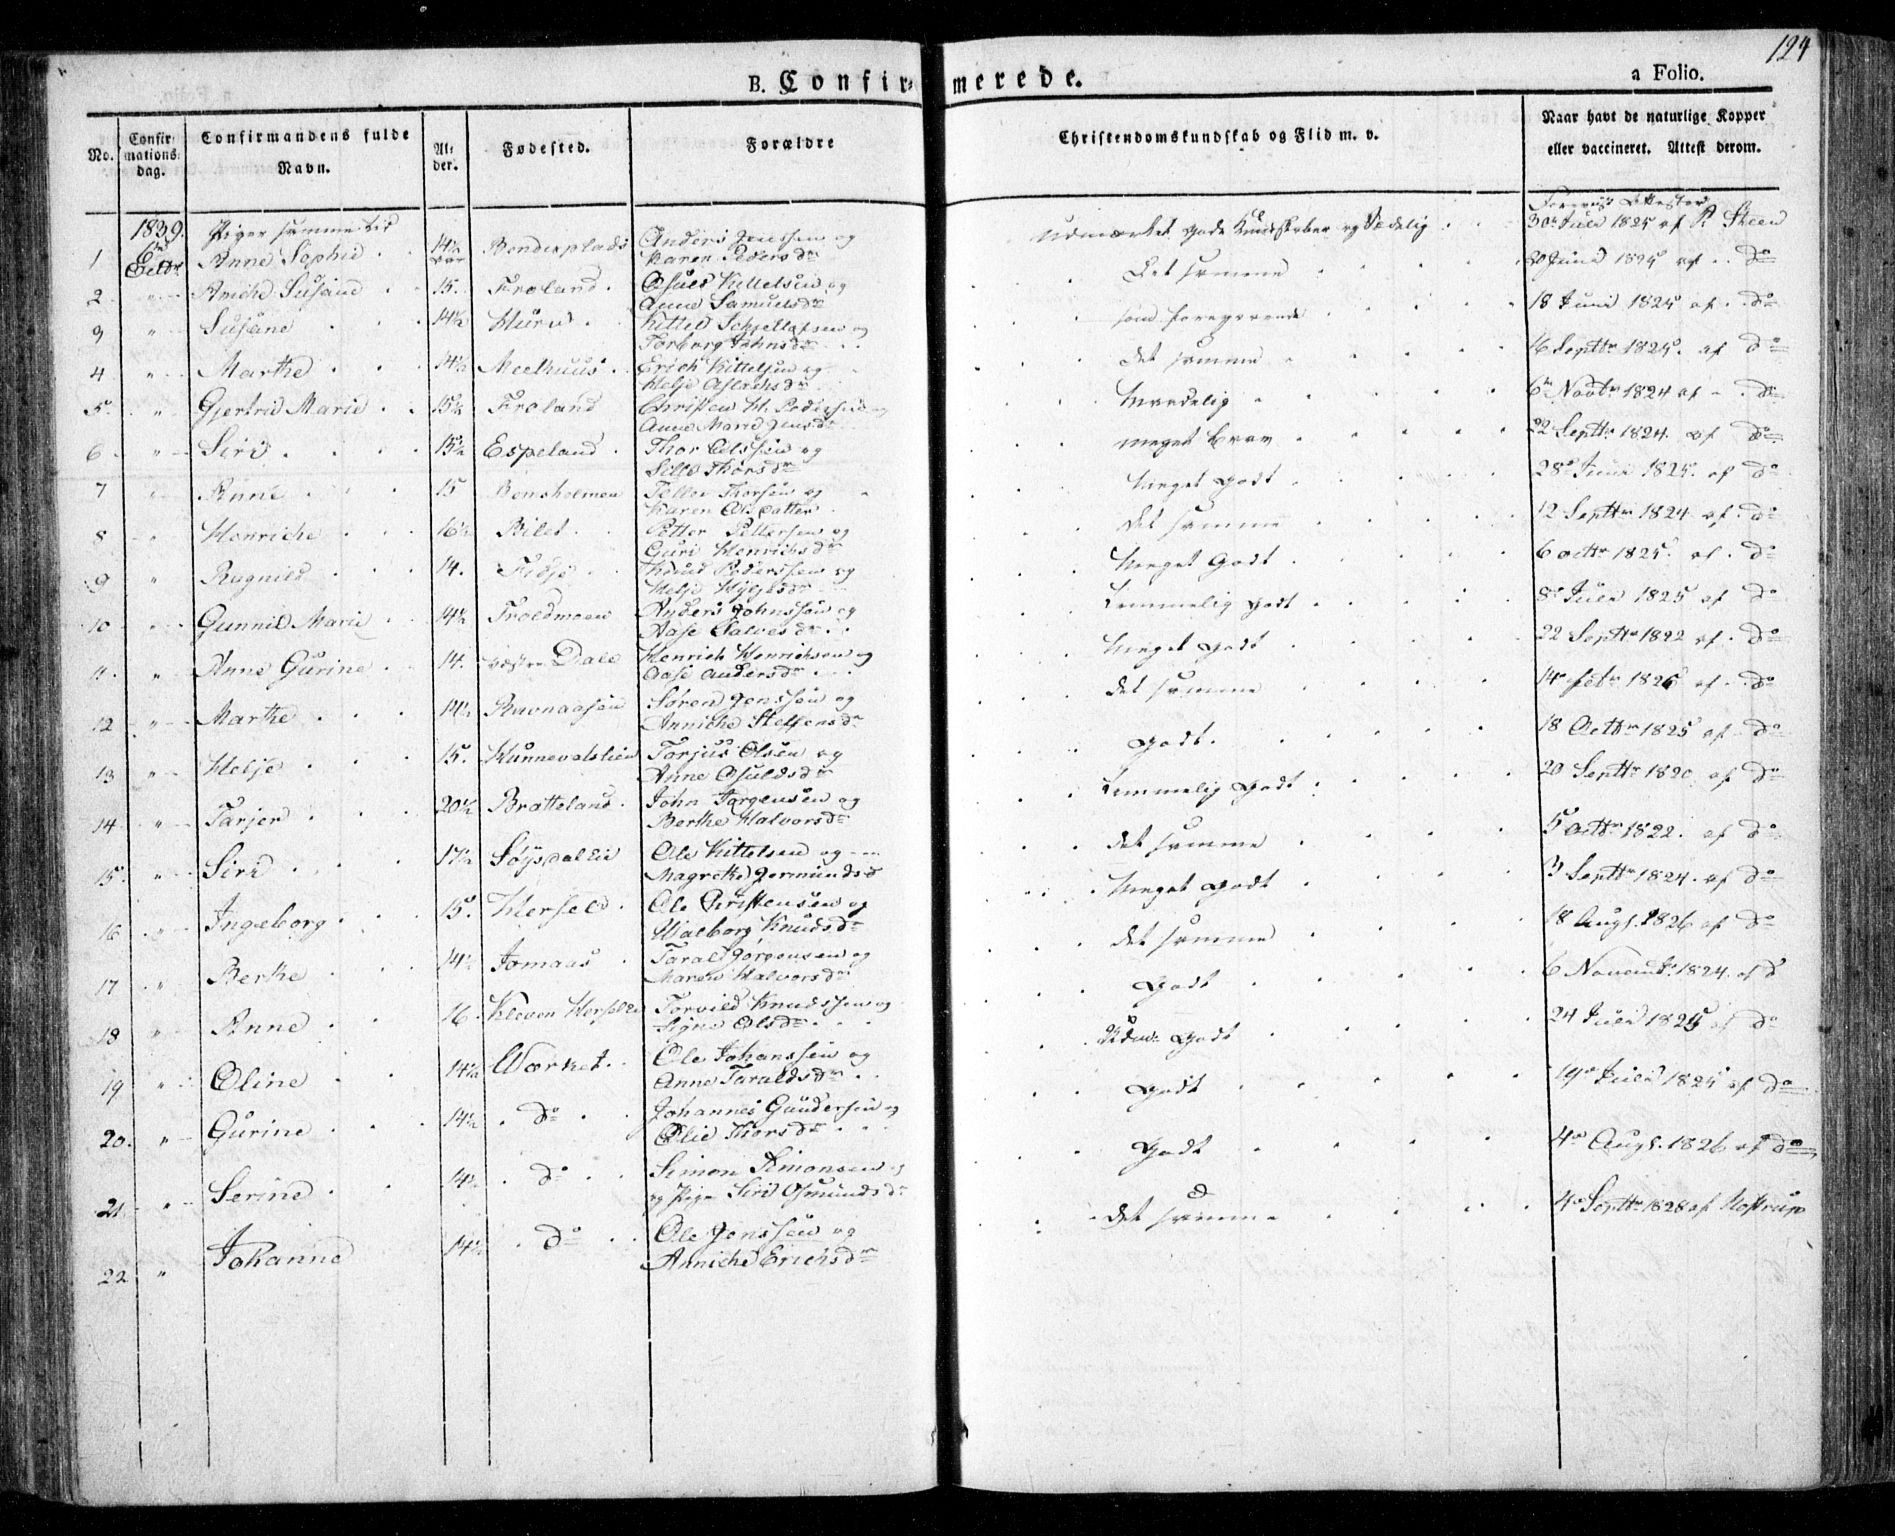 124
B. Confirmerede.
a Folio.
No.
Confirmations: dag.
Confirmandens fulde Navn.
Alder.
Fødested.
Forældre
Christendomskundskab og Flid m. v.
Naar havt de naturlige Kopper eller vaccineret. Attest derom.
1839. Piger samme tid
1 Anne Sophie 14½ Bonderplads Anders Jenssen og Karen Peders dr Udmærket gode Kundskaber og Sædelig 30 Juli 1825 af R Steen
2 " Aniche Susane 15. Froland Osuld Kittelsen og Anne Samuels dr Det samme 20 Juni 1825 af do
3 " Susane 14½ Hurv Kittel Schjellofsen og Torborg Johns dr som foregaaende 18 Juni 1825 af do
4 " Marthe 14½ Meelhuus Erich Kittelsen og Helje Aslachs dr det samme 16 Septbr 1825 af do
5 " Gjertrud Marie 15½ Froland Christen H. Pedersen og Anne Marie Jens dr Maadelig 6 Novbr 1824 af do
6 " Siri 15½ Espeland Thor Olssen og Sille Thors dr meget brav 22 Septbr 1824 af do
7 " Anne 15 Bomsholmen Tellev Thorsen og Karen Olsdatter Meget godt 28 Juni 1825 af do
8 " Henriche 16½ Rilet Petter Pettersen og Guri Henrichs dr det samme 12 Septbr 1824 af do
9 " Ragnild 14. Fidje Knud Pederssen og Helje dr Meget Godt 6 octbr 1825 af do
10 " Gunnild Marie 14½ Froldmoen Anders Johnssen og Aase Salves dr Temmelig godt 8 Juli 1825 af do
11 " Anne Gurine 14. Vestre Dale Henrich Henrichsen og Aase Anders dr Meget godt 22 Septbr 1822 af do
12 " Marthe 14½ Ravnaasen Søren Jenssen og Anniche Steffens dr det samme 14 febr 1826 af do
13 " Helje 15. Kunnevoldslien Torjus Olsen og Anne Osulds dr godt. 18 Octbr 1825 af do
14 " Tarjer 20½ Bratteland John Jørgensen og Berthe Halvors dr Temmelig godt 20 Septbr 1820 af do
15 " Siri 17½ Søysdallen Ole Kittelsen og Magrethe Jermunds d det samme 5 octbr 1822. af do
16 " Ingeborg 15. Herseld Ole Christensen og Walborg Knuds dr Meget godt 3 Septbr 1824. af do
17 " Berthe 14½ Jomaas Tarald Jørgensen og Maren Halvors dr det samme 18 Augs. 1826 af do
18 " Anne 16 Kleven Herseld Torvild Knudssen og Signe Ols dr Godt 6 Novembr 1824. af d
19 " Oline 14½ Værket. Ole Johanssen og Anne Taralds dr Udm: godt 24 Juli 1825 af do
20. " Gurine 14½ do Johannes Gundersen og Olie Thors dr Godt 19 Juli 1825 af do
21 " Serine 14½ do Simon Simonsen og Pige Siri Osmunds dr Godt 4 Augs. 1826 af do
22 " Johanne 14½ do Ole Jenssen og Anniche Erichs dr det samme 4 Septbr 1828 af Kostrup